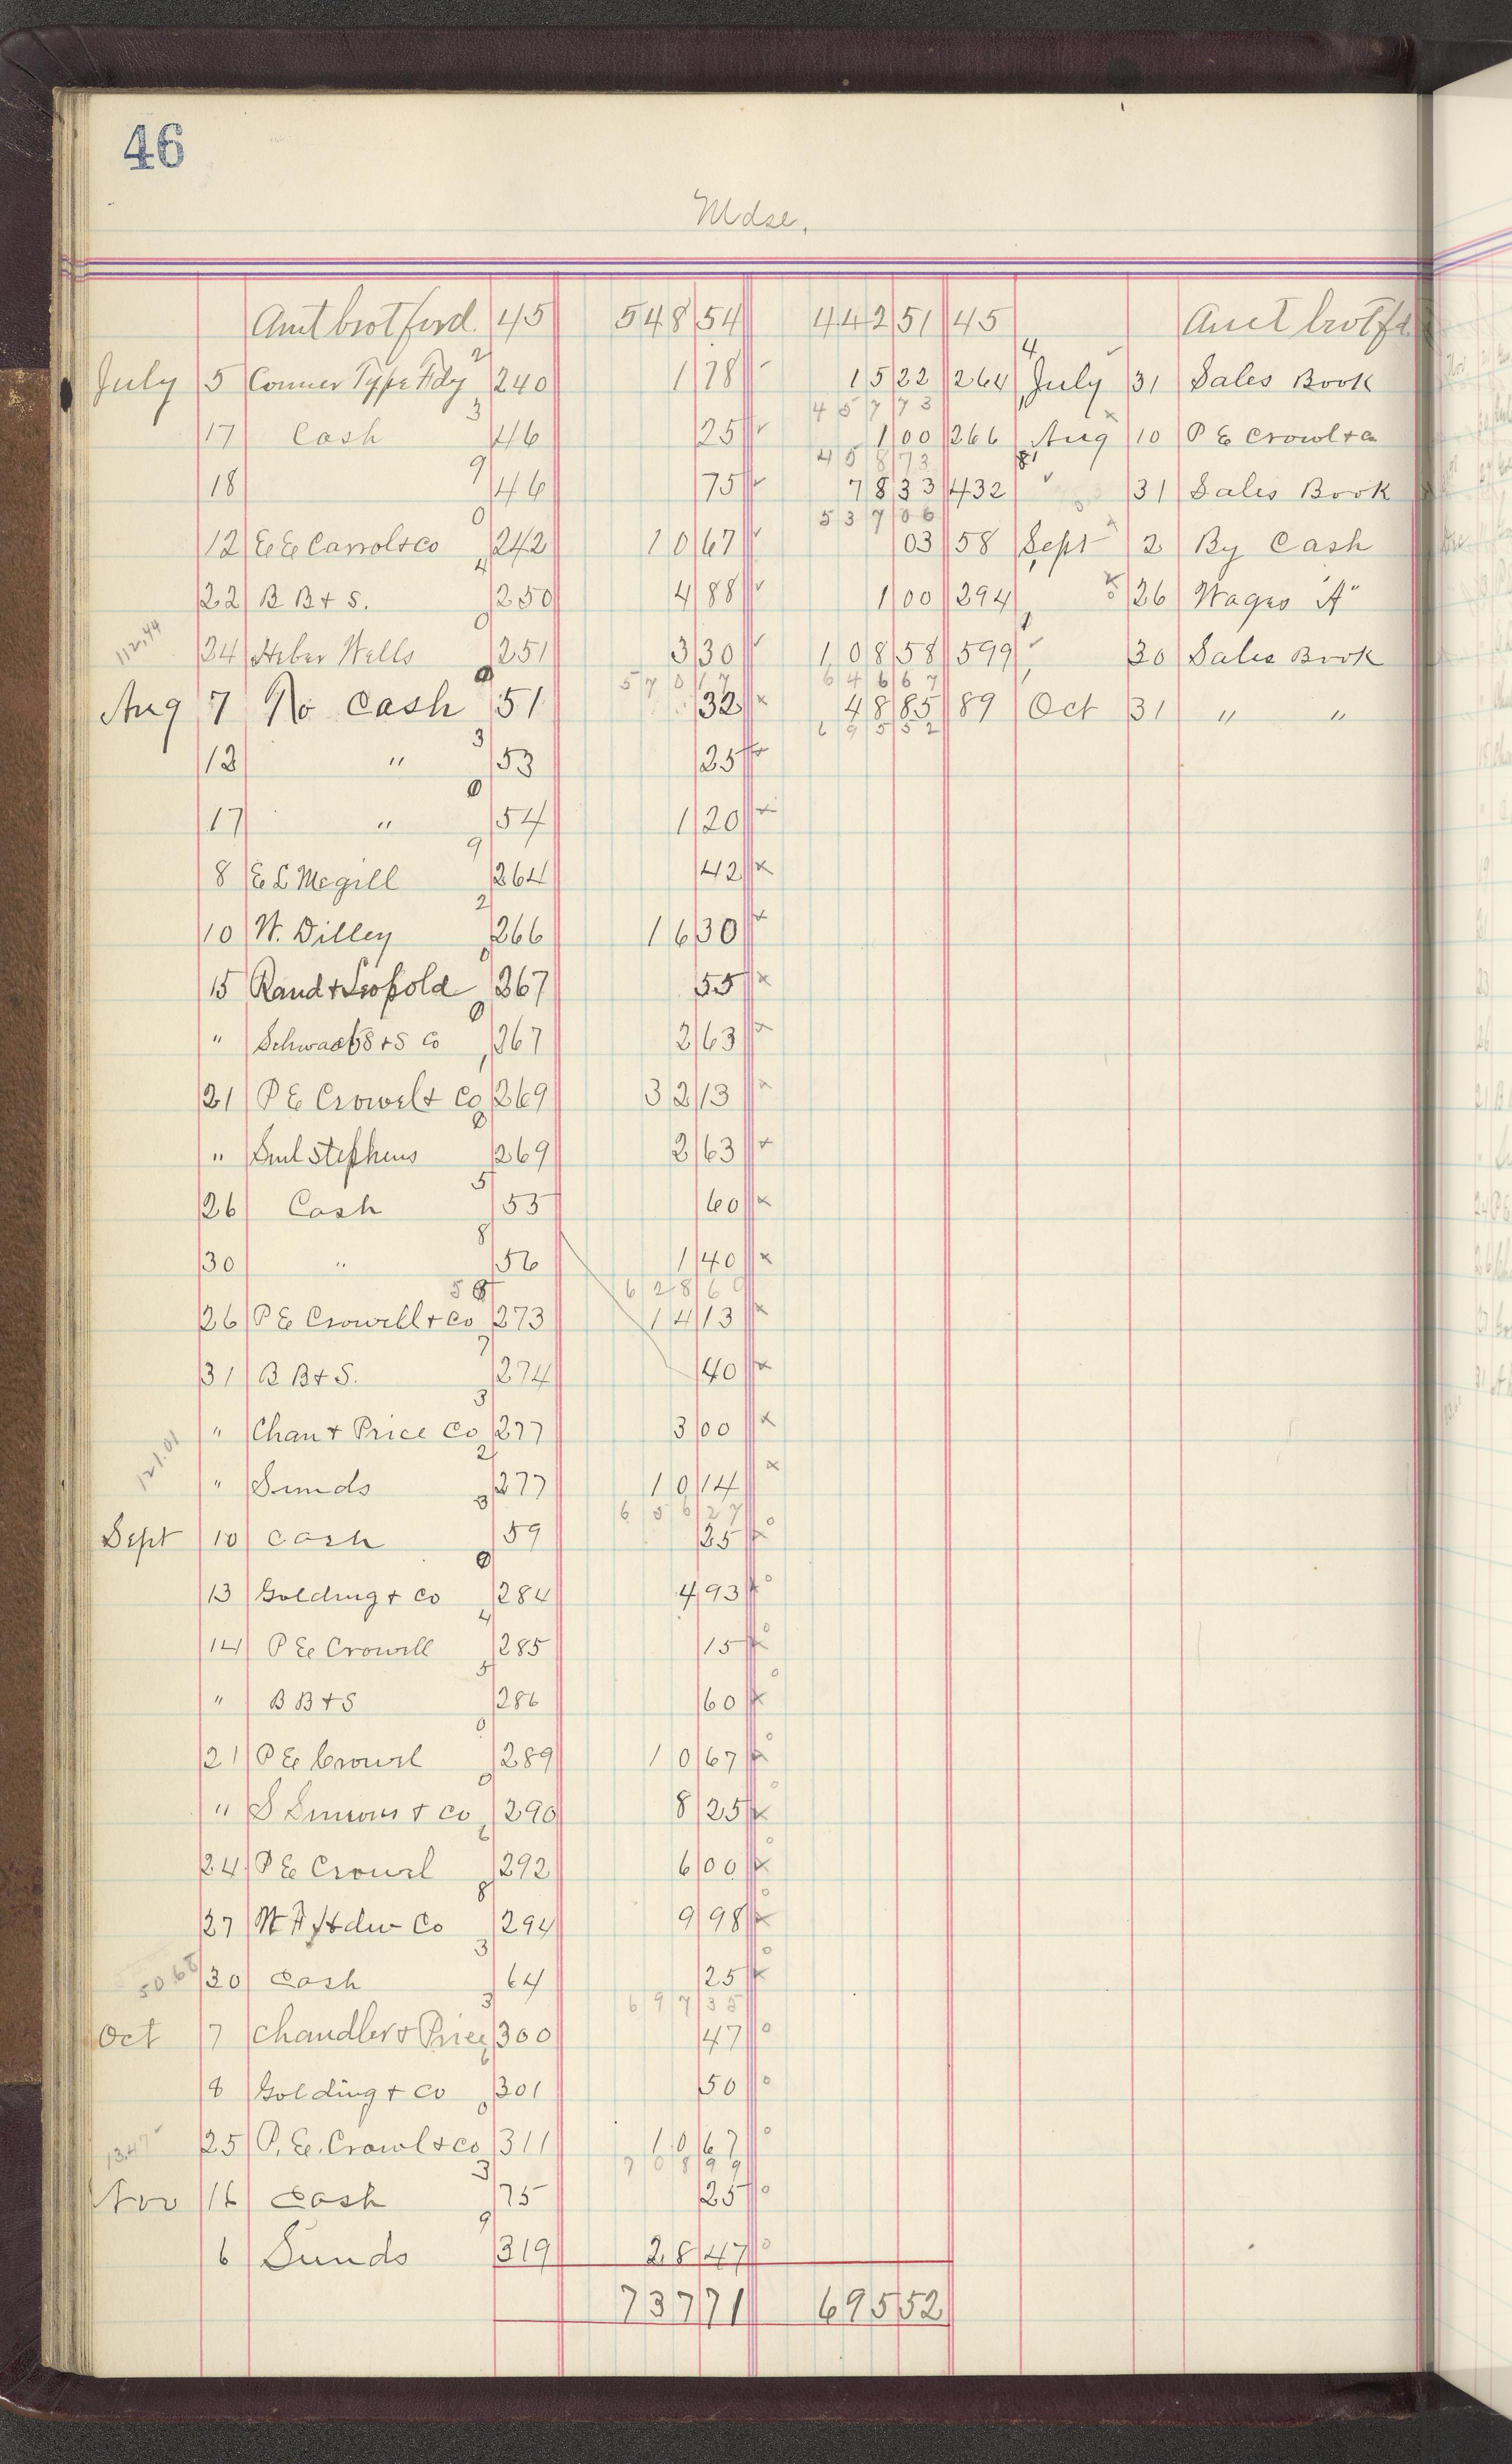 46
Mdse.
Amt brot ford. 45 548 54 442 51 45 Amt brot fd
July 5 Conner Type Fdy 240 1 78 15 22 264 July 31 Sales Book
457 73
17 Cash 46 25 1 00 266 Aug 10 P E Crowl & Co
458 73
18 46 75 78 33 432 31 Sales Book
537 06
12 E E Carrol & Co 242 10 67 03 58 Sept 2 By Cash
22 B B & S. 250 4 88 1 00 294 26 Wages "A"
112.44 24 Heber Wells 251 3 30 108 58 599 30 Sales Book
570 17 646 67
Aug 7 To Cash 51 32 48 85 89 Oct 31 " "
695 52
12 " 53 25
17 " 54 1 20
8 E L Megill 264 42
10 W. Dilley 266 16 30
15 Rand & Leopold 267 55
" Schwaab S & S Co 267 2 63
21 P E Crowel & Co 269 32 13
" Saml Stephens 269 2 63
26 Cash 55 60
30 " 56 1 40
628 60
26 P E Crowell & Co 273 14 13
31 B B & S. 274 40
" Chan & Price Co 277 3 00
121.01 " Sunds 277 10 14
656 27
Sept 10 Cash 59 25
13 Golding & Co 284 4 93
14 P E Crowell 285 15
" B B & S 286 60
21 P E Crowel 289 10 67
" S Simons & Co 290 8 25
24 P E Crowel 292 6 00
27 Hdw Co 294 9 98
50.68 30 Cash 64 25
697 35
Oct 7 Chandler & Price 300 47
8 Golding & Co 301 50
13.47 25 P. E. Crowl & Co 311 10 67
708 99
Nov 16 Cash 75 25
6 Sunds 319 28 47
737 71 695 52